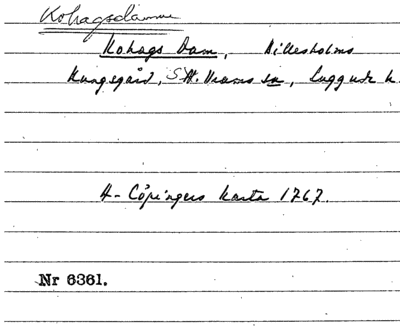 Kohagsdammen
Kohags Dam, Billesholms
Kungsgård, S. H. Wrams sn, Luggude h.
A-Cöpingers karta 1767.
Nr 6361.